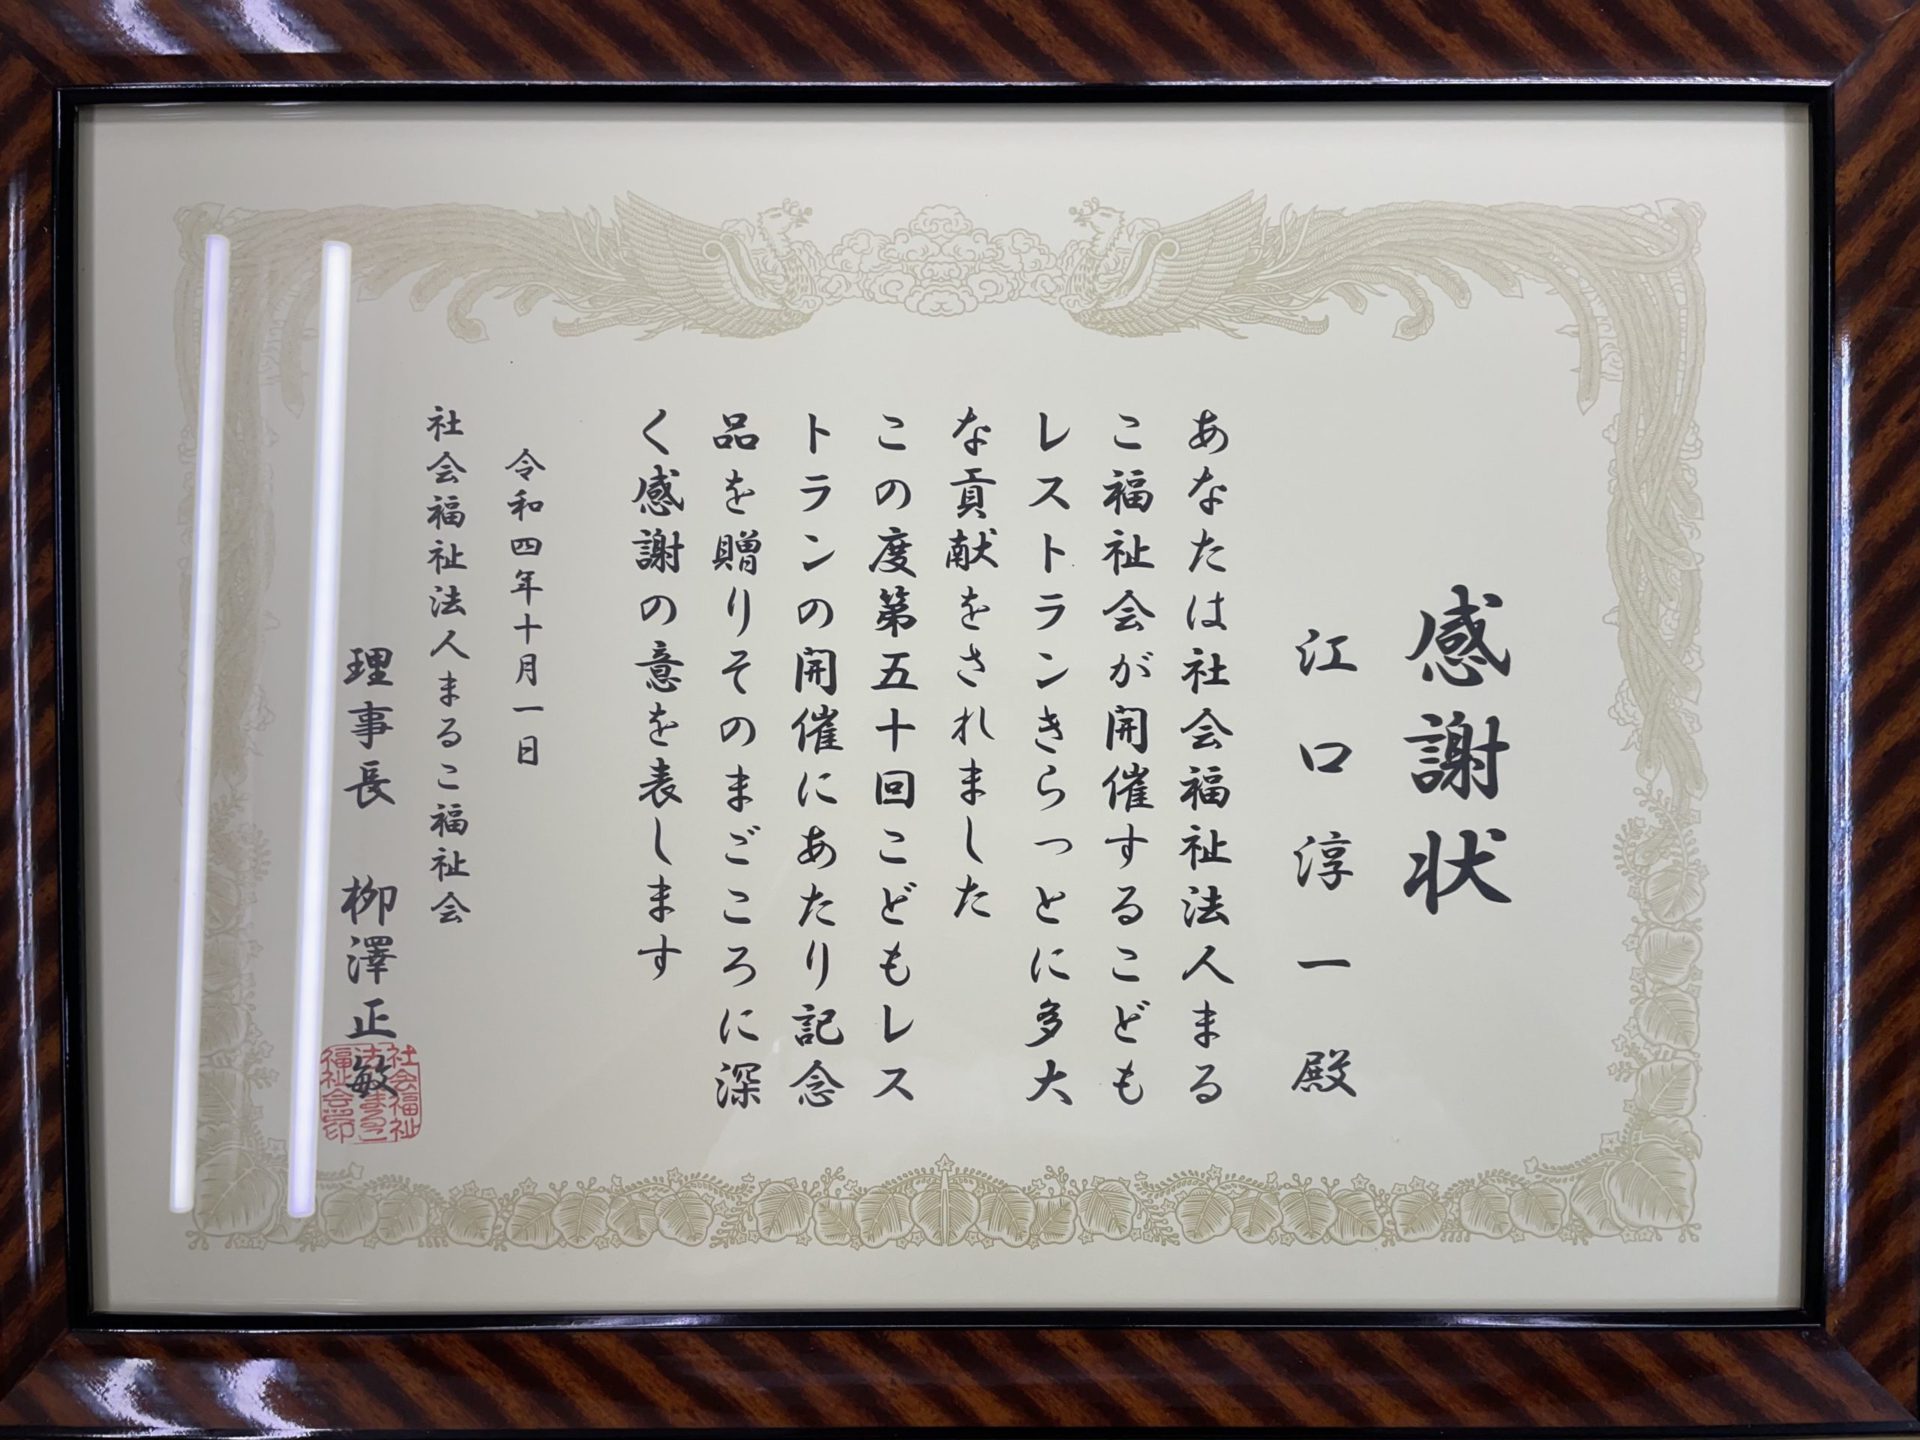 感謝状
江口淳一殿
あなたは社会福祉法人まる
こ福祉会が開催するこども
レストランきらっとに多大
な貢献をされました
この度第五十回こどもレス
トランの開催にあたり記念
品を贈りそのまごころに深
く感謝の意を表します
令和四年十月一日
社会福祉法人まるこ福祉会
理事長 柳澤正敏
社会福祉
法人まるこ
福祉会印